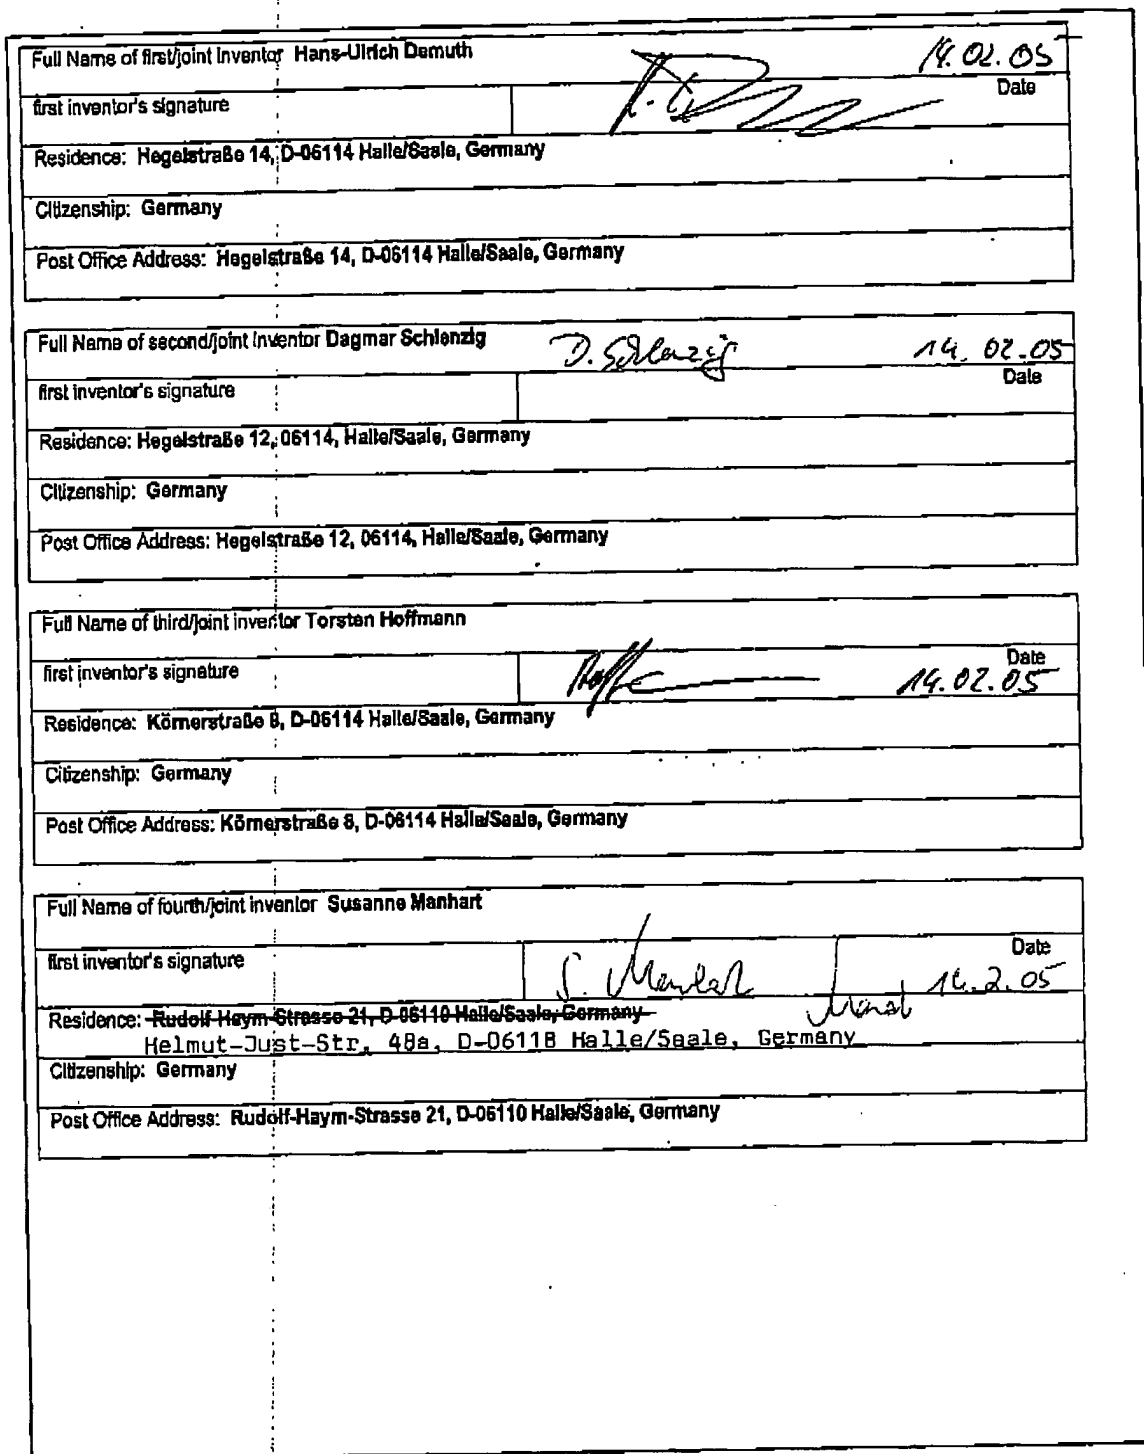 Full Name of first/joint inventor Hans-Ulrich Demuth 14.02.05
first inventor's signature Date
Residence: Hegelstraße 14, D-06114 Halle/Saale, Germany
Citizenship: Germany
Post Office Address: Hegelstraße 14, D-06114 Halle/Saale, Germany
Full Name of second/joint inventor Dagmar Schlenzig D. Schlenzig 14. 02.05
first inventor's signature Date
Residence: Hegelstraße 12, 06114, Halle/Saale, Germany
Citizenship: Germany
Post Office Address: Hegelstraße 12, 06114, Halle/Saale, Germany
Full Name of third/joint inventor Torsten Hoffmann
first inventor's signature Date
14.02.05
Residence: Körnerstraße 8, D-06114 Halle/Saale, Germany
Citizenship: Germany
Post Office Address: Körnerstraße 8, D-06114 Halle/Saale, Germany
Full Name of fourth/joint inventor Susanne Manhart
first inventor's signature Date
S. Manhart 14.2.05
Residence: Rudolf-Haym-Strasse 21, D-06110 Halle/Saale, Germany
Helmut-Just-Str, 48a, D-06118 Halle/Saale, Germany
Citizenship: Germany
Post Office Address: Rudolf-Haym-Strasse 21, D-06110 Halle/Saale, Germany